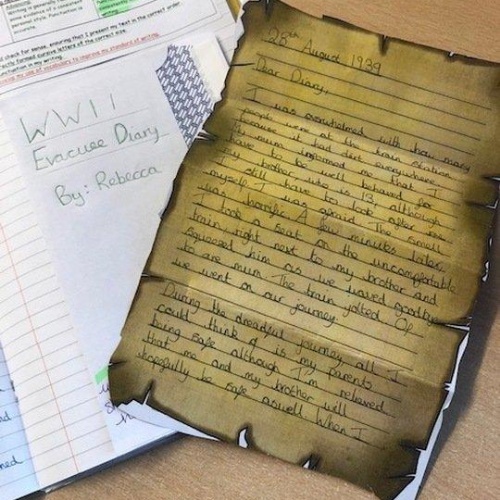 check for sense, ensuring that I present my text in the correct order.
WWII
Evacuee Diary
By: Rebecca
28th August 1939
Dear Diary,
I was overwhelmed with how many
people were at the train station
because it had dirt everywhere.
mum informed me that I
have to be well behaved for
my brother who is 13 although
I still have to look after
myself. I was afraid. The smell
was horrific. A few minutes later,
I took a seat on the uncomfortable
train right next to my brother and
squeezed him as we waved goodbye
to are mum. The train jolted Of
we went on our journey.
During the dreadful journey all I
could think of is my parents
being safe although I'm relieved
that me and my brother will
hopefully be safe aswell. When I